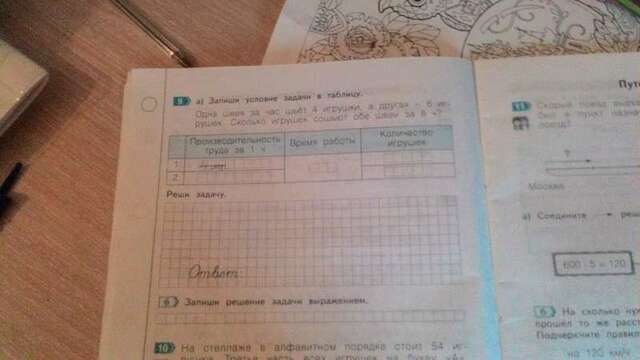 9 а) Запиши условие задачи в таблицу.
Одна швея за час шьёт 4 игрушки, а другая – 6 иг-
рушек. Сколько игрушек сошьют обе швеи за 8 ч?
Производительность труда за 1 ч
Время работы
Количество игрушек
1
2
Реши задачу.
Ответ
б Запиши решение задачи выражением.
10 На стеллаже в алфавитном порядке стоит 54 иг-
рушки. Третья часть всех игрушек на букву
Путе
11 Скорый поезд выш
был в пункт назна
поезд?
?
Москва
а) Соедините реш
600 : 5 = 120
б На сколько
прошёл то же расст
Подчеркните правил
на 120 км/ч